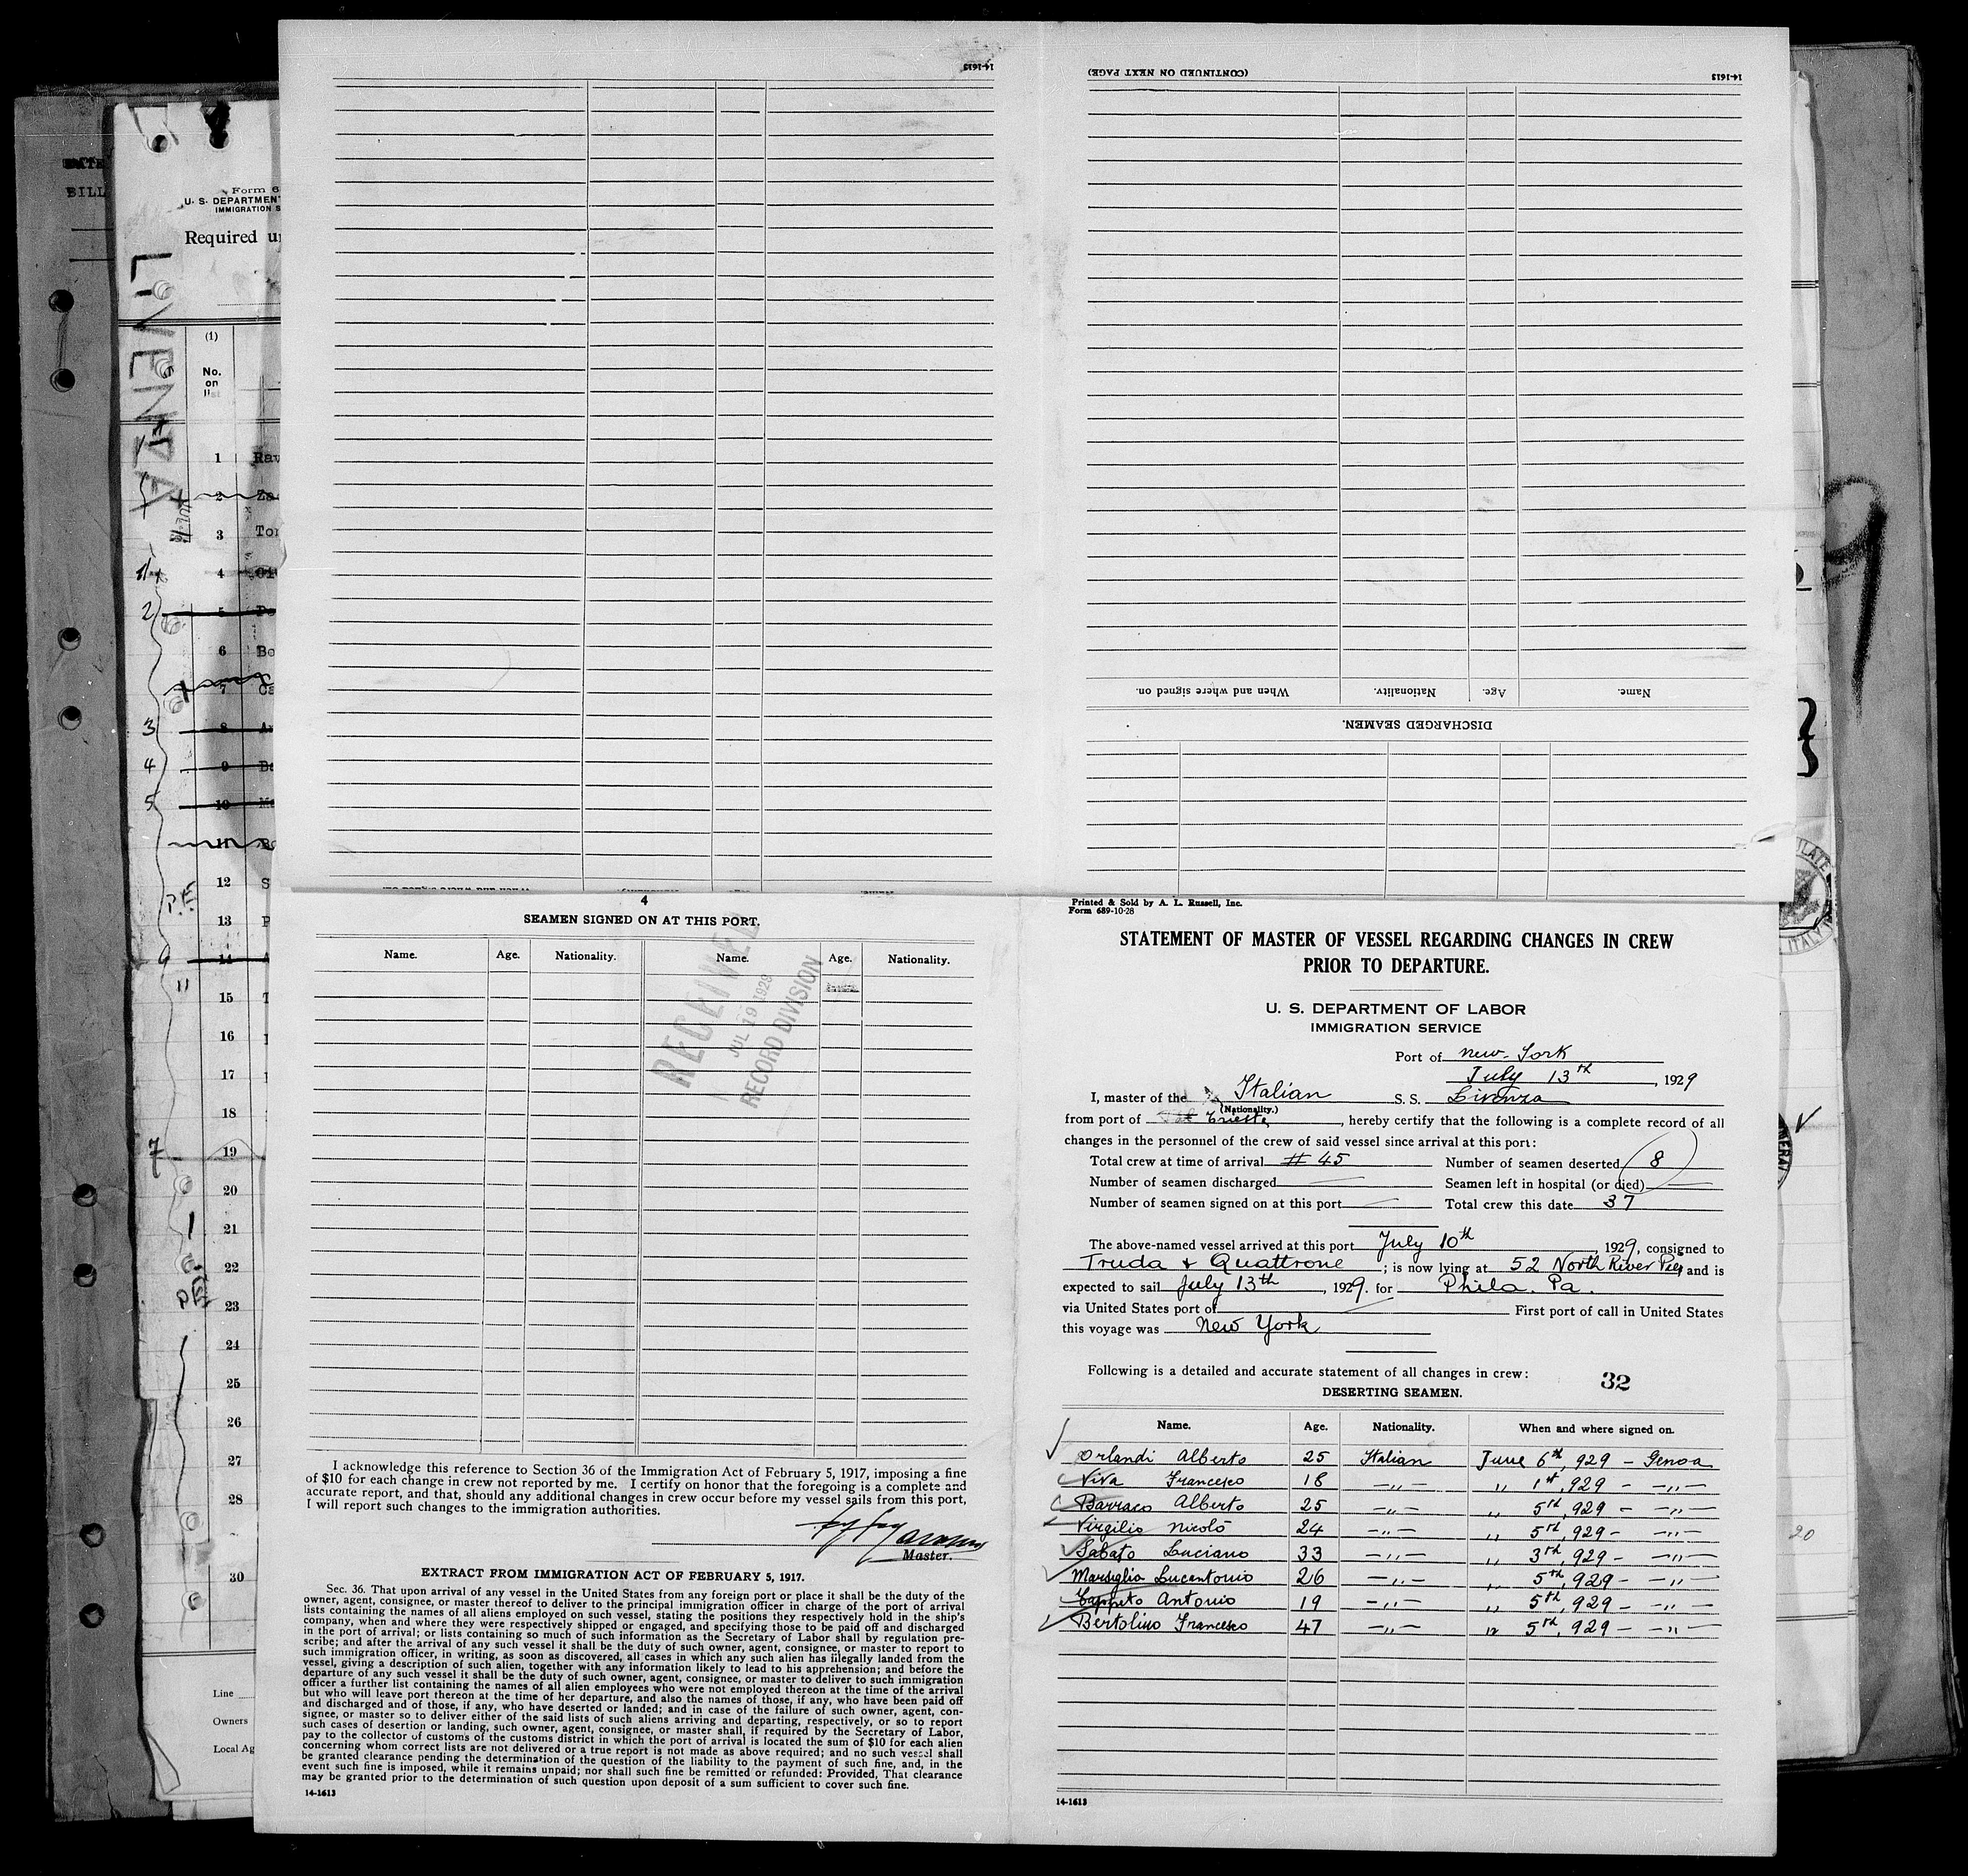 14-1613
(CONTINUED ON NEXT PAGE)
14-1613
DATE
BILL
Form 6
U. S. DEPARTMENT
IMMIGRATION S
Required u
LIVENZA
(1)
No.
on
list
1 Rav
2 Za
3 Tor
4
5
6 Bo
7 Ca
8
9 Ba
10
11
12 S
13
14
15
16
17
18
19
20
21
22
23
24
25
26
27
28
30
Line
Owners
Local Ag
When and where signed on.
Nationality.
Age.
Name.
DISCHARGED SEAMEN.
4
SEAMEN SIGNED ON AT THIS PORT.
Name. Age. Nationality. Name. Age. Nationality.
RECEIVED
JUL 19 1929
RECORD DIVISION
I acknowledge this reference to Section 36 of the Immigration Act of February 5, 1917, imposing a fine
of $10 for each change in crew not reported by me. I certify on honor that the foregoing is a complete and
accurate report, and that, should any additional changes in crew occur before my vessel sails from this port,
I will report such changes to the immigration authorities.
Master.
EXTRACT FROM IMMIGRATION ACT OF FEBRUARY 5, 1917.
Sec. 36. That upon arrival of any vessel in the United States from any foreign port or place it shall be the duty of the
owner, agent, consignee, or master thereof to deliver to the principal immigration officer in charge of the port of arrival
lists containing the names of all aliens employed on such vessel, stating the positions they respectively hold in the ship's
company, when and where they were respectively shipped or engaged, and specifying those to be paid off and discharged
in the port of arrival; or lists containing so much of such information as the Secretary of Labor shall by regulation pre-
scribe; and after the arrival of any such vessel it shall be the duty of such owner, agent, consignee, or master to report to
such immigration officer, in writing, as soon as discovered, all cases in which any such alien has illegally landed from the
vessel, giving a description of such alien, together with any information likely to lead to his apprehension; and before the
departure of any such vessel it shall be the duty of such owner, agent, consignee, or master to deliver to such immigration
officer a further list containing the names of all alien employees who were not employed thereon at the time of the arrival
but who will leave port thereon at the time of her departure, and also the names of those, if any, who have been paid off
and discharged and of those, if any, who have deserted or landed; and in case of the failure of such owner, agent, con-
signee, or master so to deliver either of the said lists of such aliens arriving and departing, respectively, or so to report
such cases of desertion or landing, such owner, agent, consignee, or master shall, if required by the Secretary of Labor,
pay to the collector of customs of the customs district in which the port of arrival is located the sum of $10 for each alien
concerning whom correct lists are not delivered or a true report is not made as above required; and no such vessel shall
be granted clearance pending the determination of the question of the liability to the payment of such fine, and, in the
event such fine is imposed, while it remains unpaid; nor shall such fine be remitted or refunded: Provided, That clearance
may be granted prior to the determination of such question upon deposit of a sum sufficient to cover such fine.
14-1613
Printed & Sold by A. L. Russell, Inc.
Form 689-10-28
STATEMENT OF MASTER OF VESSEL REGARDING CHANGES IN CREW
PRIOR TO DEPARTURE.
U. S. DEPARTMENT OF LABOR
IMMIGRATION SERVICE
Port of New-York
July 13th, 1929
I, master of the Italian S. S. Livenza
(Nationality.)
from port of Trieste, hereby certify that the following is a complete record of all
changes in the personnel of the crew of said vessel since arrival at this port:
Total crew at time of arrival # 45 Number of seamen deserted 8
Number of seamen discharged — Seamen left in hospital (or died) —
Number of seamen signed on at this port — Total crew this date 37
The above-named vessel arrived at this port July 10th, 1929, consigned to
Truda & Quattrone; is now lying at 52 North River Pier and is
expected to sail July 13th, 1929. for Phila. Pa.
via United States port of — First port of call in United States
this voyage was New York
Following is a detailed and accurate statement of all changes in crew:
32
DESERTING SEAMEN.
Name. Age. Nationality. When and where signed on.
Orlandi Alberto 25 Italian June 6th, 929 - Genoa
Viva Francesco 18 -"- " 1st, 929 - -"-
Barraco Alberto 25 -"- " 5th, 929 - -"-
Virgilio Nicolò 24 -"- " 5th, 929 - -"-
Sabato Luciano 33 -"- " 3th, 929 - -"-
Marsiglia Lucantonio 26 -"- " 5th, 929 - -"-
Cappeto Antonio 19 -"- " 5th, 929 - -"-
Bertolino Francesco 47 -"- " 5th, 929 - -"-
14-1613